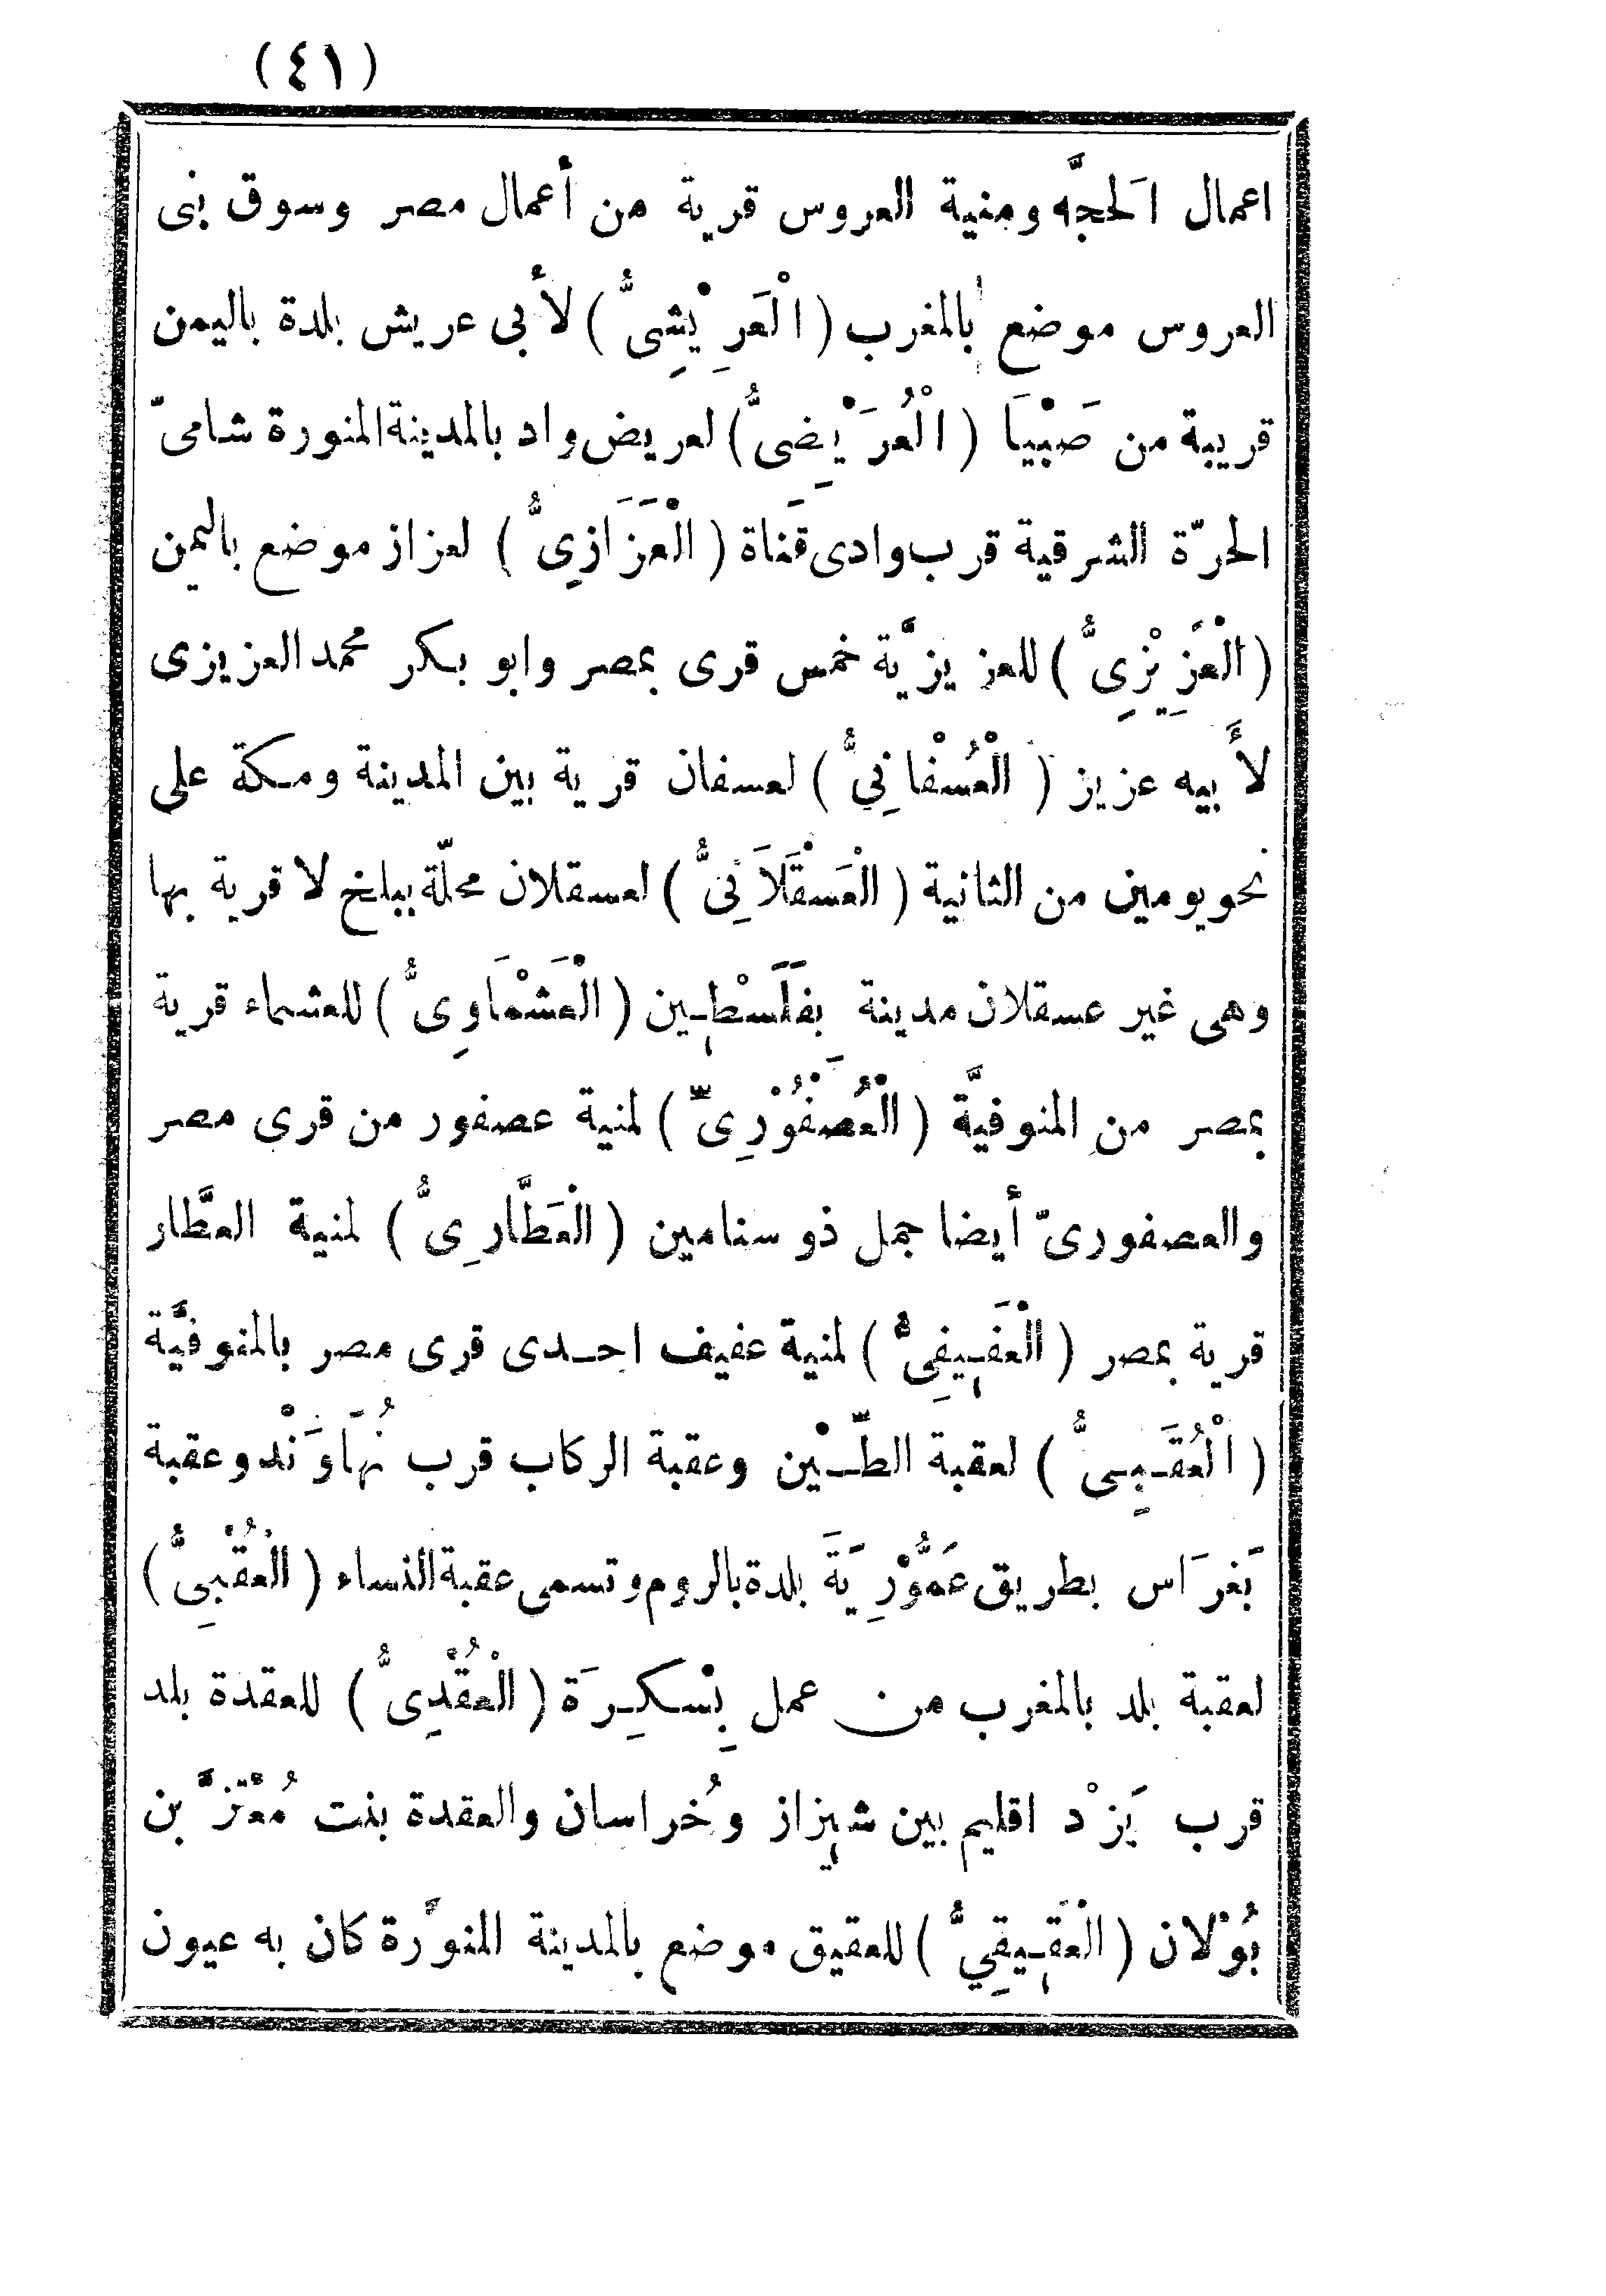 (٤١)
اعمال الَحجَّه ومنية العروس قرية من أعمال مصر وسوق بنى
العروس موضع بالمغرب (الْعَرِيْشِىُّ) لأبى عريش بلدة باليمن
قريبة من صَبْيَا (الْعُرَيْضِىُّ) لعريض واد بالمدينة المنورة شامىّ
الحرّة الشرقية قرب وادى قَناة (الْعَزَازِىُّ) لعزاز موضع باليمن
(الْعَزِيْزِىُّ) للعزيزيَّة خمس قرى بمصر وابو بكر محمد العزيزى
لأَبيه عزيز (الْعُسْفَانِيُّ) لعسفان قرية بين المدينة ومكة على
نحو يومين من الثانية (الْعَسْقَلَانِىُّ) لعسقلان محلّة ببلخ لا قرية بها
وهى غير عسقلان مدينة بفَلَسْطِين (الْعَشْمَاوِىُّ) للعشماء قرية
بمصر من المنوفيَّة (الْعُصْفُوْرِىّ) لمنية عصفور من قرى مصر
والعصفورىّ أيضا جمل ذو سنامين (الْعَطَّارِىُّ) لمنية العطَّار
قرية بمصر (الْعَفِيفِىُّ) لمنية عفيف احدى قرى مصر بالمنوفيَّة
(الْعُقَبِىُّ) لعقبة الطِّيْن وعقبة الركاب قرب نُهَاوَنْد وعقبة
بَغرَاس بطريق عَمُّوْرِيَةَ بلدة بالروم وتسمى عقبة النساء (الْعُقْبِىُّ)
لعقبة بلد بالمغرب من عمل بِسْكِرَة (الْعُقْدِىُّ) للعقدة بلد
قرب يَزْد اقليم بين شيراز وخُراسان والعقدة بنت مُعْتزَّ بن
بُوْلان (الْعَقِيقِيُّ) للعقيق موضع بالمدينة المنوَّرة كان به عيون